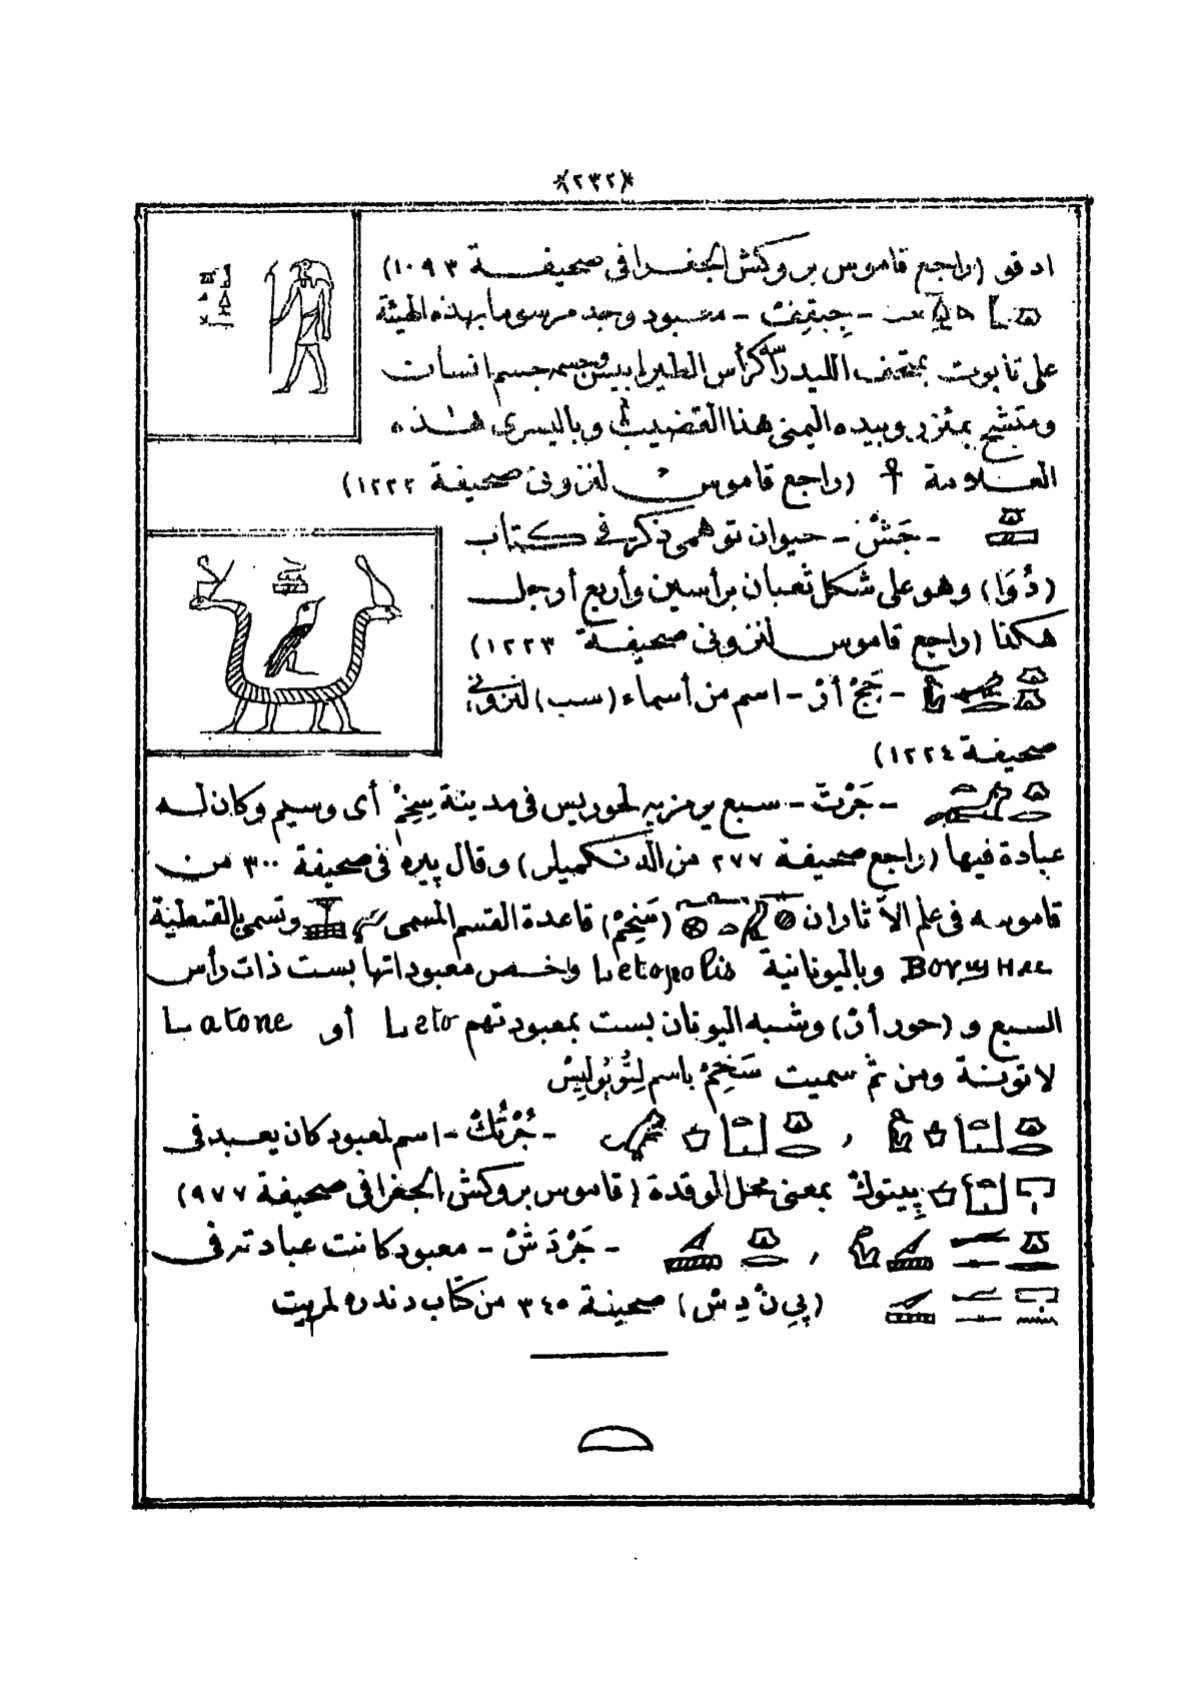 *(٢٣٢)*
ادفو (راجع قاموس بروكش الجغرافى صحيفة ١٠٩٣)
- جِبقِفتْ - معبود وجد مرسوما بهذه الهيئة
على تابوت بمتحف الليد رأسه كرأس الطير ابيس وجسمه جسم انسان
ومتشح بمئزر وبيده اليمنى هذا القضيب وباليسرى هذه
العلامة ☥ (راجع قاموس لنزونى صحيفة ١٢٢٢)
- جَشْن - حيوان توهمى ذكر فى كتاب
(دُوَا) وهو على شكل ثعبان برأسين وأربع أرجل
هكذا (راجع قاموس لنزونى صحيفة ١٢٢٣)
- جَجْ أرْ - اسم من أسماء (سب) لنزونى
صحيفة ١٢٢٤)
- جَرْتَ - سبع يرمز به لحوريس فى مدينة سِخِمْ أى وسيم وكان له
عبادة فيها (راجع صحيفة ٢٧٧ من الدنكميلر) وقال پيره فى صحيفة ٣٠٠ من
قاموسه فى علم الآثار ان (سَخِمْ) قاعدة القسم المسمى وتسمى بالقبطية
ⲂⲞⲨϢⲎⲘ وباليونانية Letopolis واخص معبوداتها بست ذات رأس
السبع و (حور أرْ) وشبه اليونان بست بمعبودتهم Leto أو Latone
لاتونة ومن ثم سميت سَخِمْ باسم لِتُوبُولِيسْ
، - جُرْتُكْ - اسم لمعبود كان يعبد فى
پيتوك بمعنى محل الموقدة (قاموس بروكش الجغرافى صحيفة ٩٧٧)
، - جَرْدَشْ - معبود كانت عبادته فى
(پِى نْ دِش) صحيفة ٣٤٥ من كتاب دندره لمريت